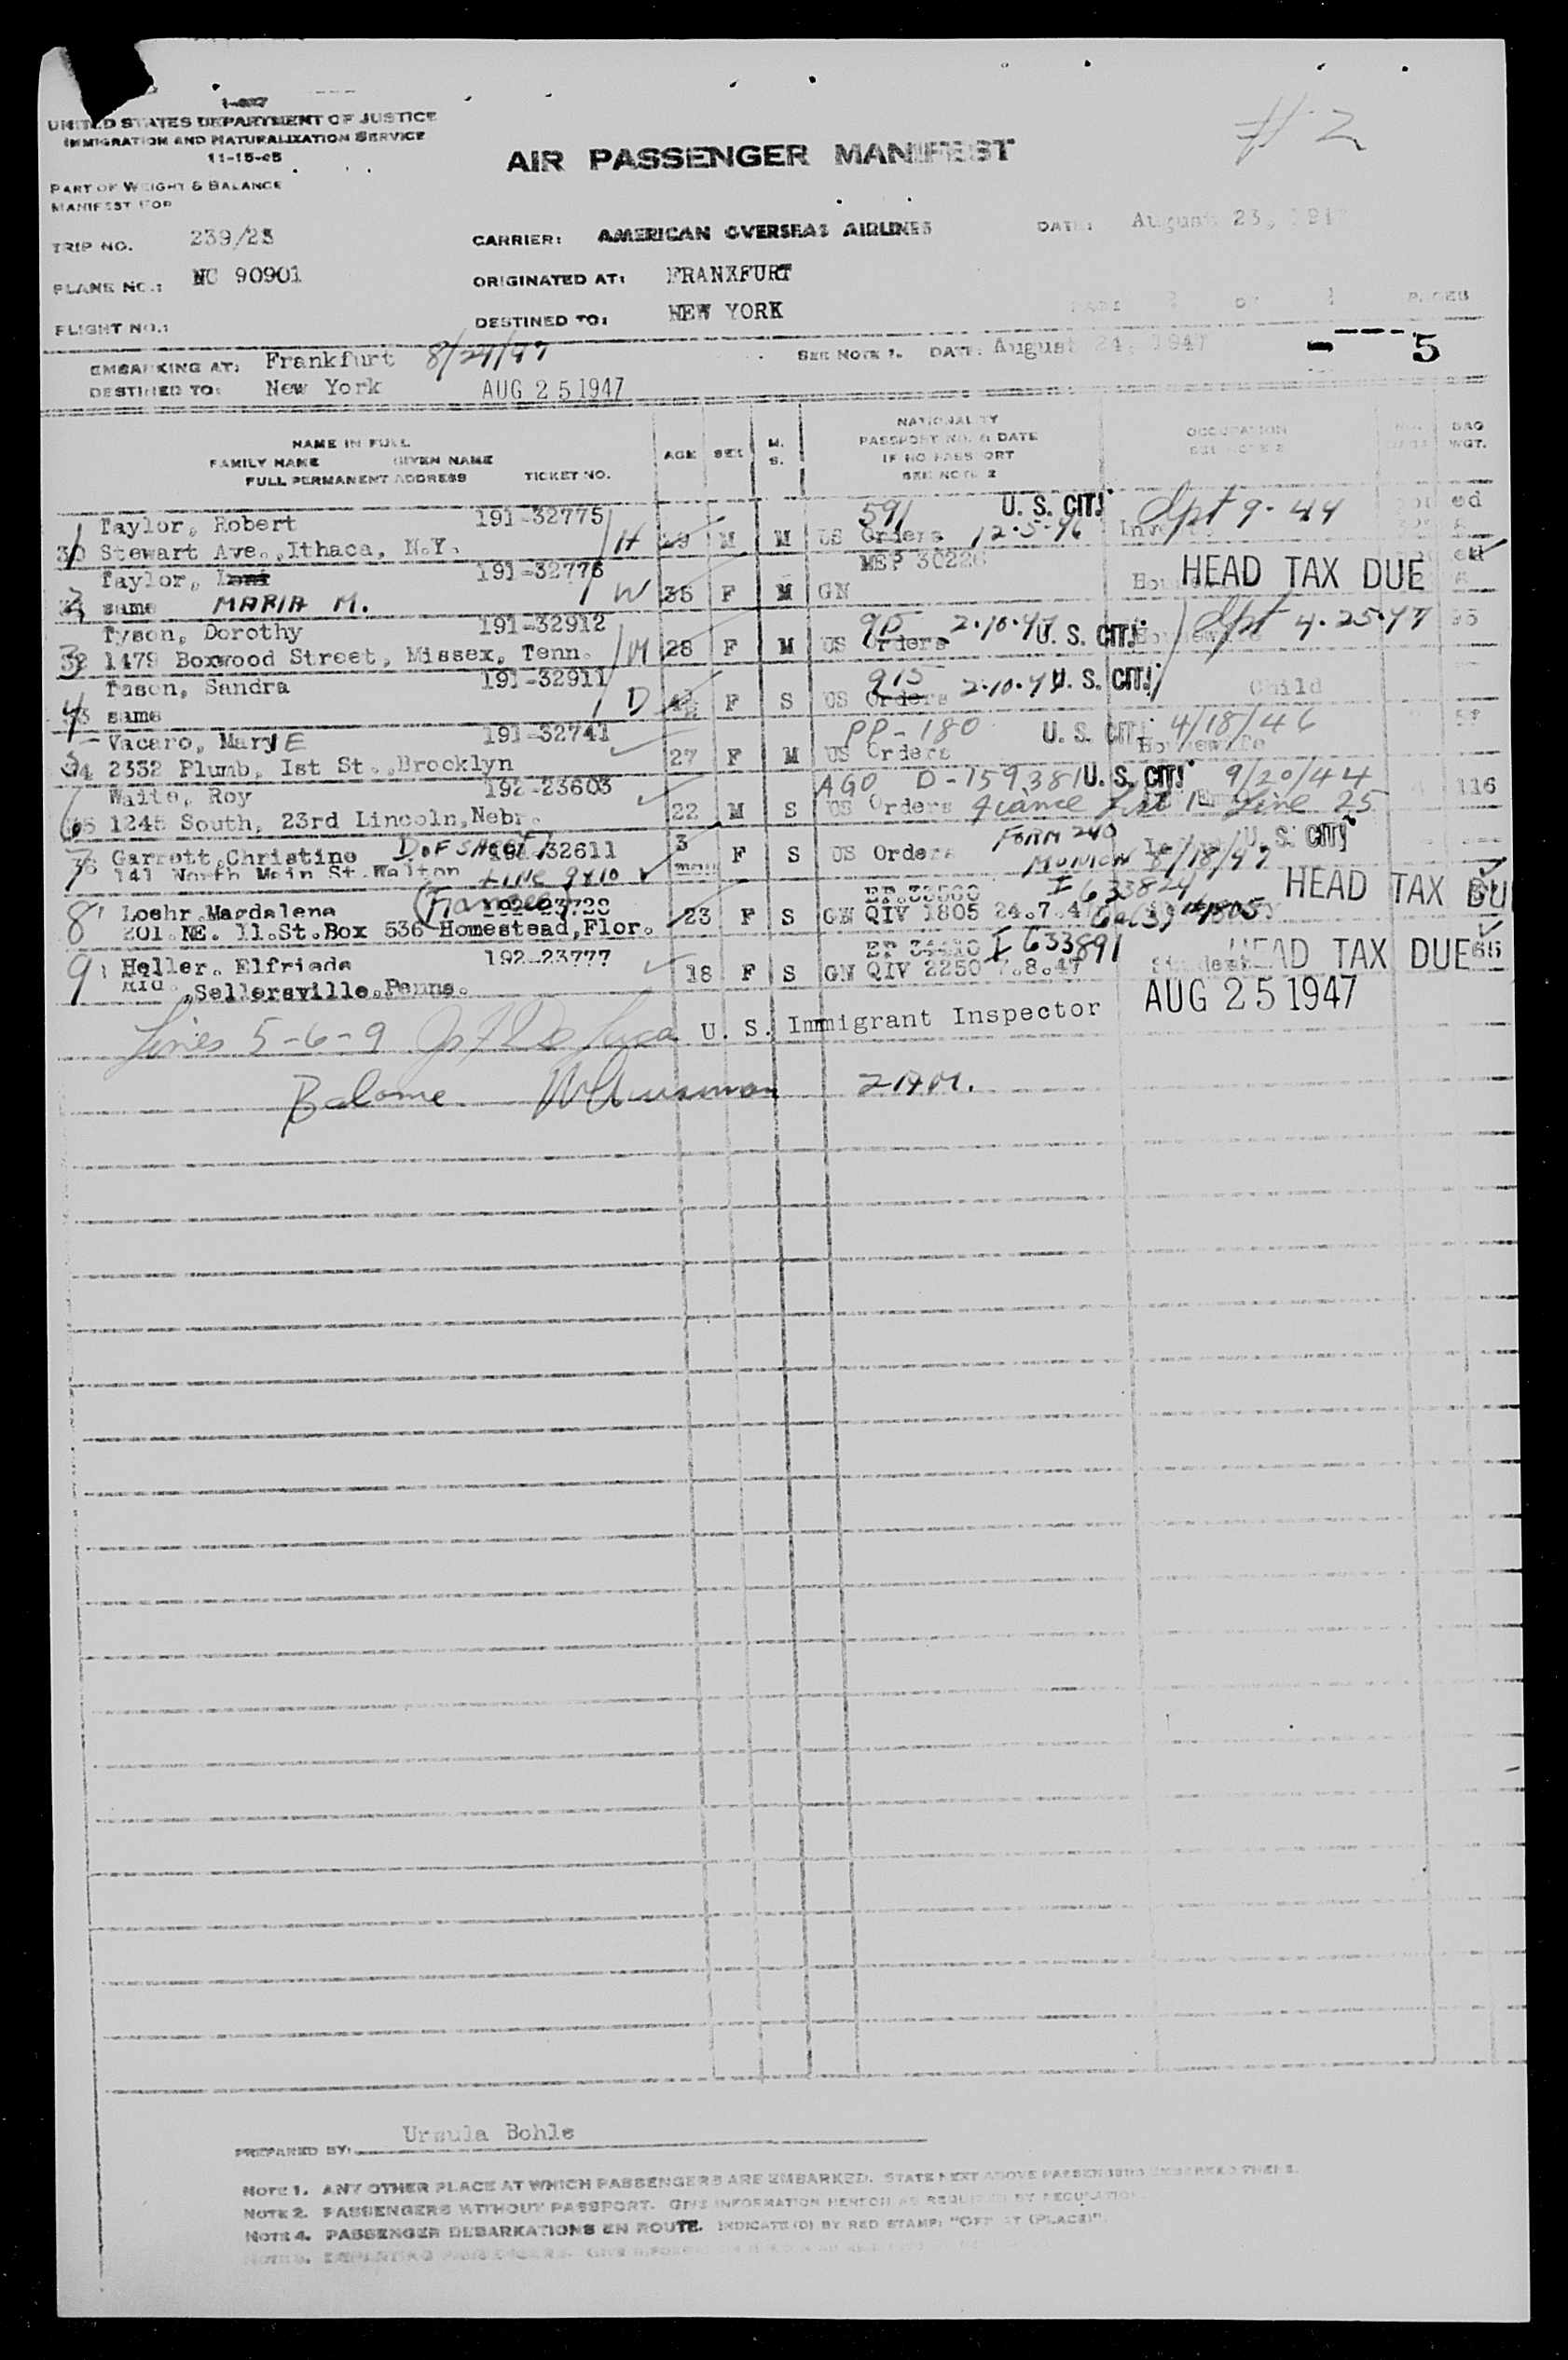 # 2
UNITED STATES DEPARTMENT OF JUSTICE
IMMIGRATION AND NATURALIZATION SERVICE
11-15-45
AIR PASSENGER MANIFEST
PART OF WEIGHT & BALANCE
MANIFEST FOR
TRIP NO. 239/23 CARRIER: AMERICAN OVERSEAS AIRLINES DATE: August 23, 194
PLANE NO.: NC 90901 ORIGINATED AT: FRANKFURT
FLIGHT NO.: DESTINED TO: NEW YORK PAGES
EMBARKING AT: Frankfurt 8/24/47 SEE NOTE 1. DATE: August 24, 1947 5
DESTINED TO: New York AUG 25 1947
NAME IN FULL
FAMILY NAME GIVEN NAME
FULL PERMANENT ADDRESS TICKET NO.
AGE SEX M. S.
NATIONALITY
PASSPORT NO. & DATE
IF NO PASSPORT
SEE NOTE 2
OCCUPATION
SEE NOTE 2
BAG WGT.
1 Taylor, Robert 191-32775 591 U. S. CIT.
30 Stewart Ave.,Ithaca, N.Y. H M M US Orders 12-5-46 9-44
2 Taylor, 191-32776 MEP 30226
same MARIA M. W 35 F M GN HEAD TAX DUE
3 Tyson, Dorothy 191-32912 915 2-10-47 U. S. CIT.
32 1479 Boxwood Street, Missex, Tenn. M 28 F M US Orders 4-25-47
4 Tuson, Sandra 191-32911 915 2-10-47 U. S. CIT.
33 same D F S US Orders Child
Vacaro, Mary E 191-32741 PP-180 U. S. CIT. 4/18/46
34 2332 Plumb, Ist St.,Brooklyn 27 F M US Orders Housewife
6 Waite, Roy 192-23603 AGO D-159381 U. S. CIT. 9/20/44
35 1245 South, 23rd Lincoln,Nebr. 22 M S US Orders fiance Line 25 116
7 Garrett,Christine 191-32611 3 mon F S US Orders FORM 240 U. S. CIT.
36 141 North Main St.Walton LINE 9X10 MUNICH 8/18/47
8 Loehr,Magdalena (Fiancee) 192-23728 I 633824 HEAD TAX DU
201.NE. 11.St.Box 536 Homestead,Flor. 23 F S GN QIV 1805 24.7.47
9 Heller, Elfriede 192-23777 I 633891 HEAD TAX DUE
,Sellersville,Penna. 18 F S GN QIV 2250 7.8.47 Student
Lines 5-6-9 U. S. Immigrant Inspector AUG 25 1947
Balance
Ursula Bohle
PREPARED BY:
NOTE 1. ANY OTHER PLACE AT WHICH PASSENGERS ARE EMBARKED. STATE NEXT ABOVE PASSENGERS EMBARKED THERE.
NOTE 2. PASSENGERS WITHOUT PASSPORT. GIVE INFORMATION HEREON AS REQUIRED BY REGULATION.
NOTE 4. PASSENGER DEBARKATIONS EN ROUTE. INDICATE (D) BY RED STAMP: "OFF AT (PLACE)".